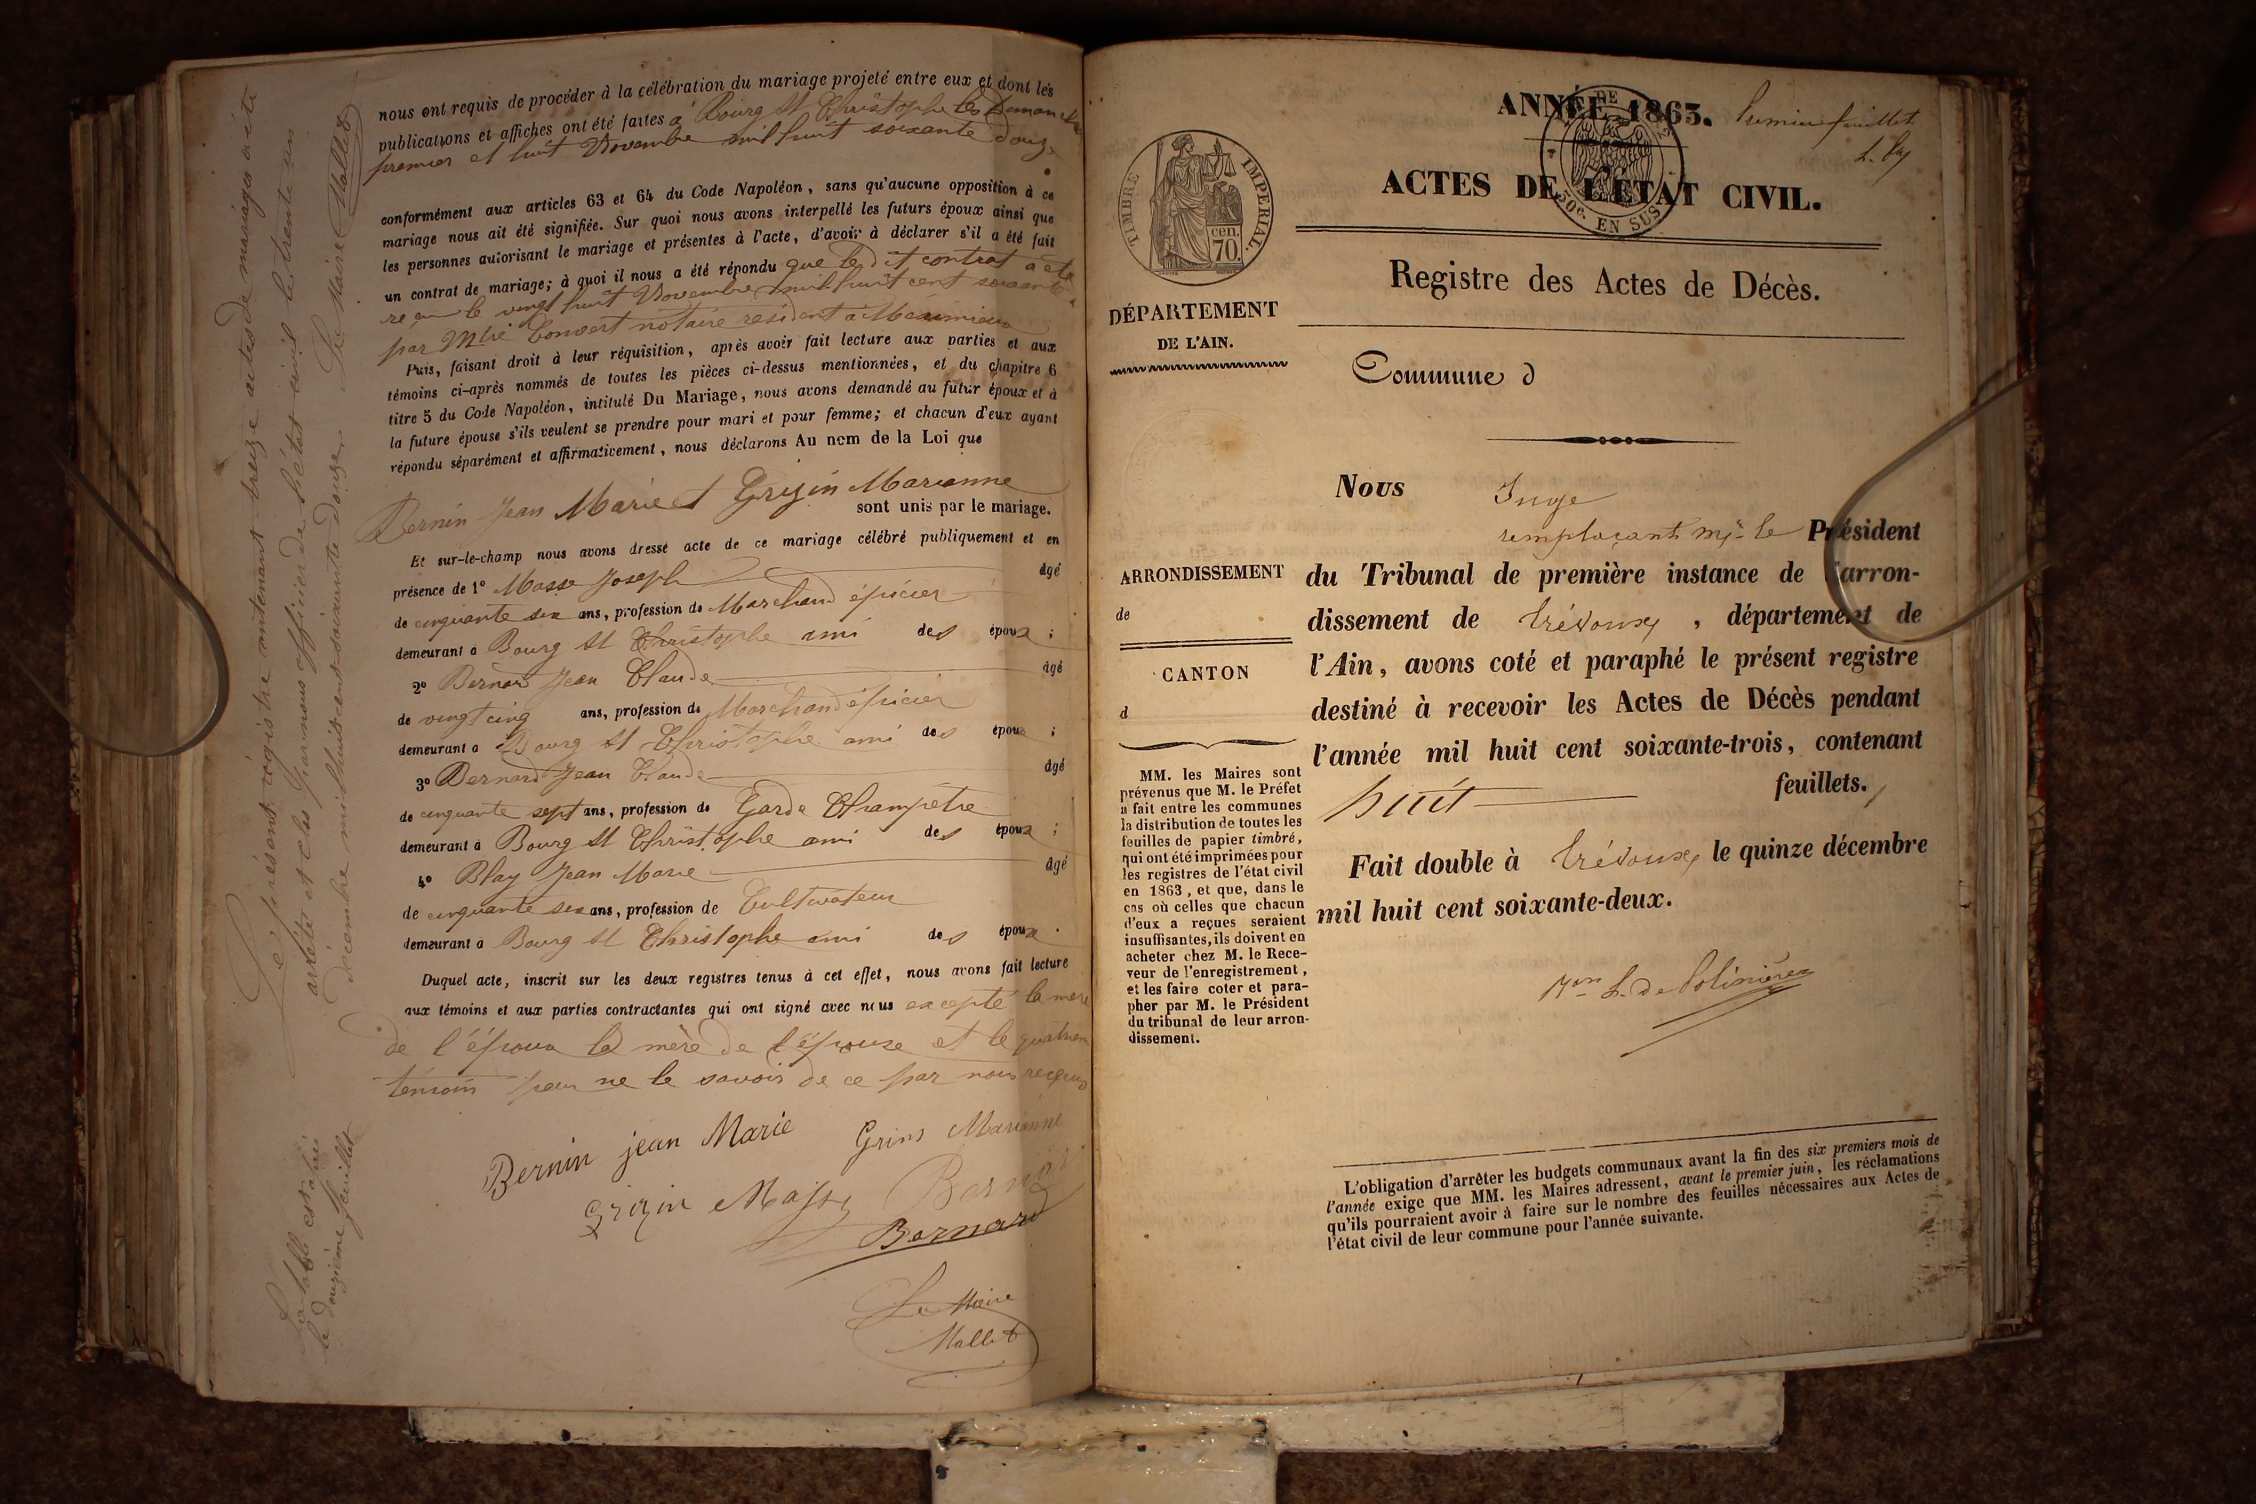 nous ont requis de procéder à la célébration du mariage projeté entre eux et dont les
publications et affiches ont été faites à Bourg St Christophe les Dimanche
premier et huit Novembre mil huit soixante douze
conformément aux articles 63 et 64 du Code Napoléon, sans qu'aucune opposition à ce
mariage nous ait été signifiée. Sur quoi nous avons interpellé les futurs époux ainsi que
les personnes autorisant le mariage et présentes à l'acte, d'avoir à déclarer s'il a été fait
un contrat de mariage; à quoi il nous a été répondu que le dit contrat a été
reçu le vingt huit Novembre mil huit cent soixante
par Mtre Convert notaire résident à Meximieux
Puis, faisant droit à leur réquisition, après avoir fait lecture aux parties et aux
témoins ci-après nommés de toutes les pièces ci-dessus mentionnées, et du chapitre 6
titre 5 du Code Napoléon, intitulé Du Mariage, nous avons demandé au futur époux et à
la future épouse s'ils veulent se prendre pour mari et pour femme; et chacun d'eux ayant
répondu séparément et affirmativement, nous déclarons Au nom de la Loi que
Bernin Jean Marie et Grizin Marianne
sont unis par le mariage.
Et sur-le-champ nous avons dressé acte de ce mariage célébré publiquement et en
présence de 1° Masse Joseph âgé
de cinquante six ans, profession de Marchand épicier
demeurant à Bourg St Christophe ami des époux ;
2° Bernard Jean Claude âgé
de vingt cinq ans, profession de Marchand épicier
demeurant à Bourg St Christophe ami des époux ;
3° Bernard Jean Claude âgé
de cinquante sept ans, profession de Garde Champêtre
demeurant à Bourg St Christophe ami des époux ;
4° Blay Jean Marie âgé
de cinquante six ans, profession de Cultivateur
demeurant à Bourg St Christophe ami des époux .
Duquel acte, inscrit sur les deux registres tenus à cet effet, nous avons fait lecture
aux témoins et aux parties contractantes qui ont signé avec nous excepté la mère
de l'époux la mère de l'épouse et le quatrièm
témoin pour ne le savoir de ce par nous requis
Bernin jean Marie Grins Marianne
Grizin Masse Bernard
Bernard
Le Maire
Mallet
Le présent registre contenant treize actes de mariages a été
arrêté et clos par nous officier de l'état civil le trente un
décembre mil huit cent soixante douze. Le Maire Mallet
La table est au
le douzième feuillet
ANNÉE 1863. premier feuillet
TIMBRE IMPERIAL.
cen. 70.
DE
50c. EN SUS
ACTES DE L'ÉTAT CIVIL.
Registre des Actes de Décès.
DÉPARTEMENT
DE L'AIN.
Commune d
ARRONDISSEMENT
de
CANTON
d
MM. les Maires sont
prévenus que M. le Préfet
a fait entre les communes
la distribution de toutes les
feuilles de papier timbré,
qui ont été imprimées pour
les registres de l'état civil
en 1863, et que, dans le
cas où celles que chacun
d'eux a reçues seraient
insuffisantes, ils doivent en
acheter chez M. le Rece-
veur de l'enregistrement,
et les faire coter et para-
pher par M. le Président
du tribunal de leur arron-
dissement.
Nous Juge
remplaçant Mr le Président
du Tribunal de première instance de l'arron-
dissement de Trévoux, département de
l'Ain, avons coté et paraphé le présent registre
destiné à recevoir les Actes de Décès pendant
l'année mil huit cent soixante-trois, contenant
huit feuillets.
Fait double à Trévoux, le quinze décembre
mil huit cent soixante-deux.
L. de Polinière
L'obligation d'arrêter les budgets communaux avant la fin des six premiers mois de
l'année exige que MM. les Maires adressent, avant le premier juin, les réclamations
qu'ils pourraient avoir à faire sur le nombre des feuilles nécessaires aux Actes de
l'état civil de leur commune pour l'année suivante.